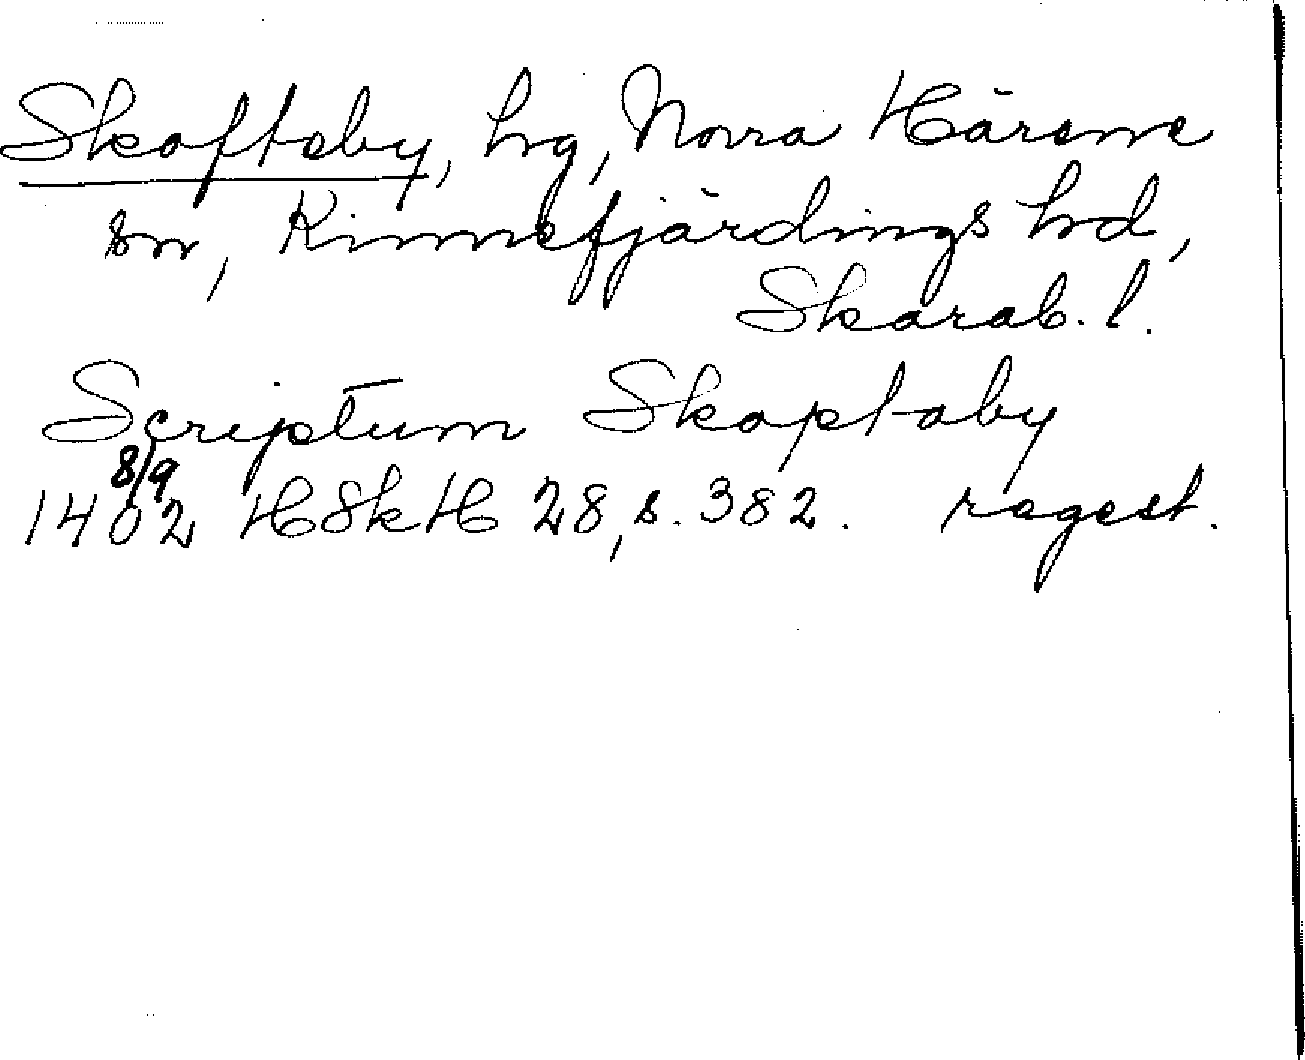 Skofteby, hg, Norra Härene
sn, Kinnefjärdings hd,
Skarab. l.
Scriptum Skoptaby
8/9
1402 HSkH 28, s. 382. regest.